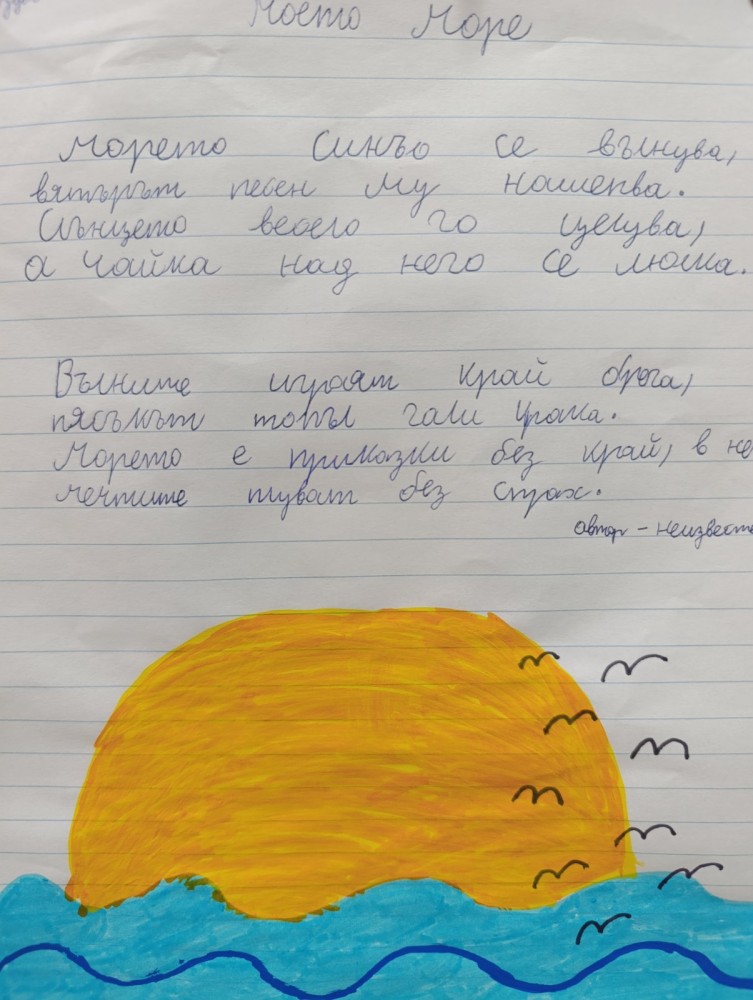 Моето Море
Морето синьо се вълнува,
вятърът песен му нашепва.
Слънцето весело го целува,
а чайка над него се люшка.
Вълните играят край брега,
пясъкът топъл гали крака.
Морето е приказки без край, в не
мечтите плуват без страх.
автор - неизвестн